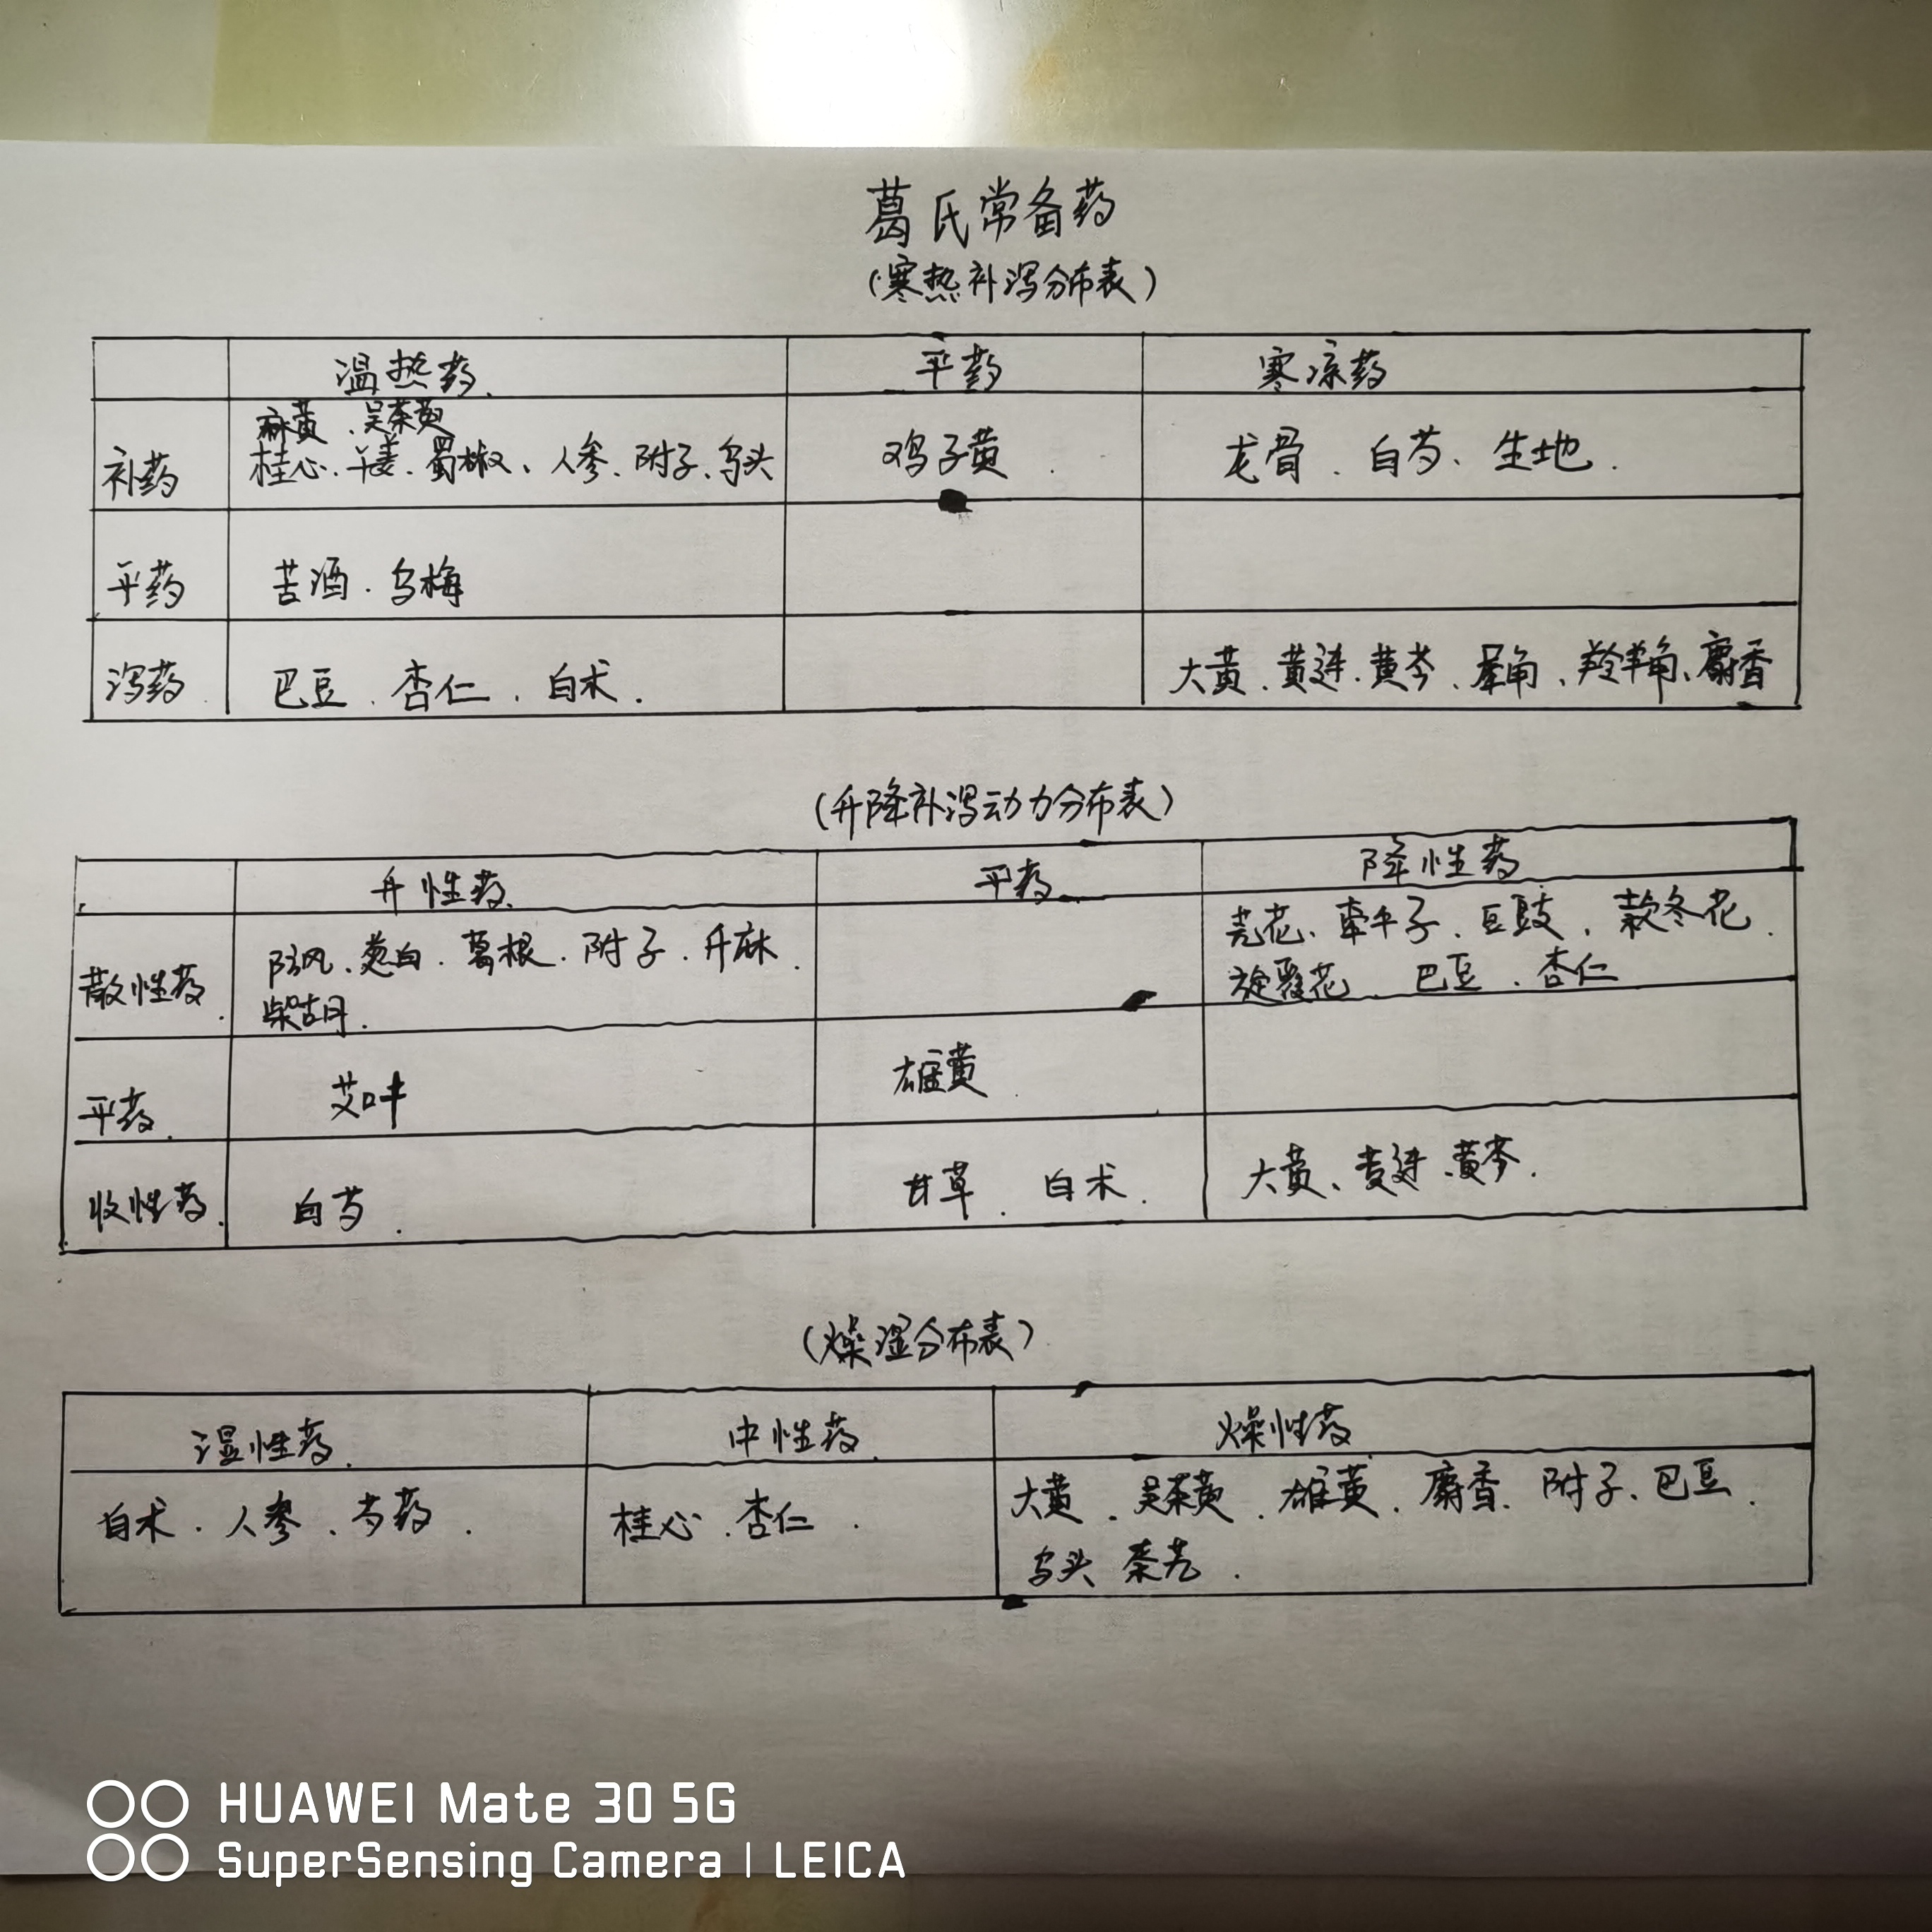 葛氏常备药
（寒热补泻分布表）
温热药 平药 寒凉药
麻黄、吴茱萸
补药 桂心、干姜、蜀椒、人参、附子、乌头 鸡子黄 龙骨、白芍、生地
平药 苦酒、乌梅
泻药 巴豆、杏仁、白术 大黄、黄连、黄芩、犀角、羚羊角、麝香
（升降补泻动力分布表）
升性药 平药 降性药
散性药 防风、葱白、葛根、附子、升麻 芫花、牵牛子、豆豉、款冬花
柴胡 旋覆花、巴豆、杏仁
平药 艾叶 雄黄
收性药 白芍 甘草、白术 大黄、黄连、黄芩
（燥湿分布表）
湿性药 中性药 燥性药
白术、人参、芍药 桂心、杏仁 大黄、吴茱萸、雄黄、麝香、附子、巴豆
乌头 秦艽
HUAWEI Mate 30 5G
SuperSensing Camera | LEICA